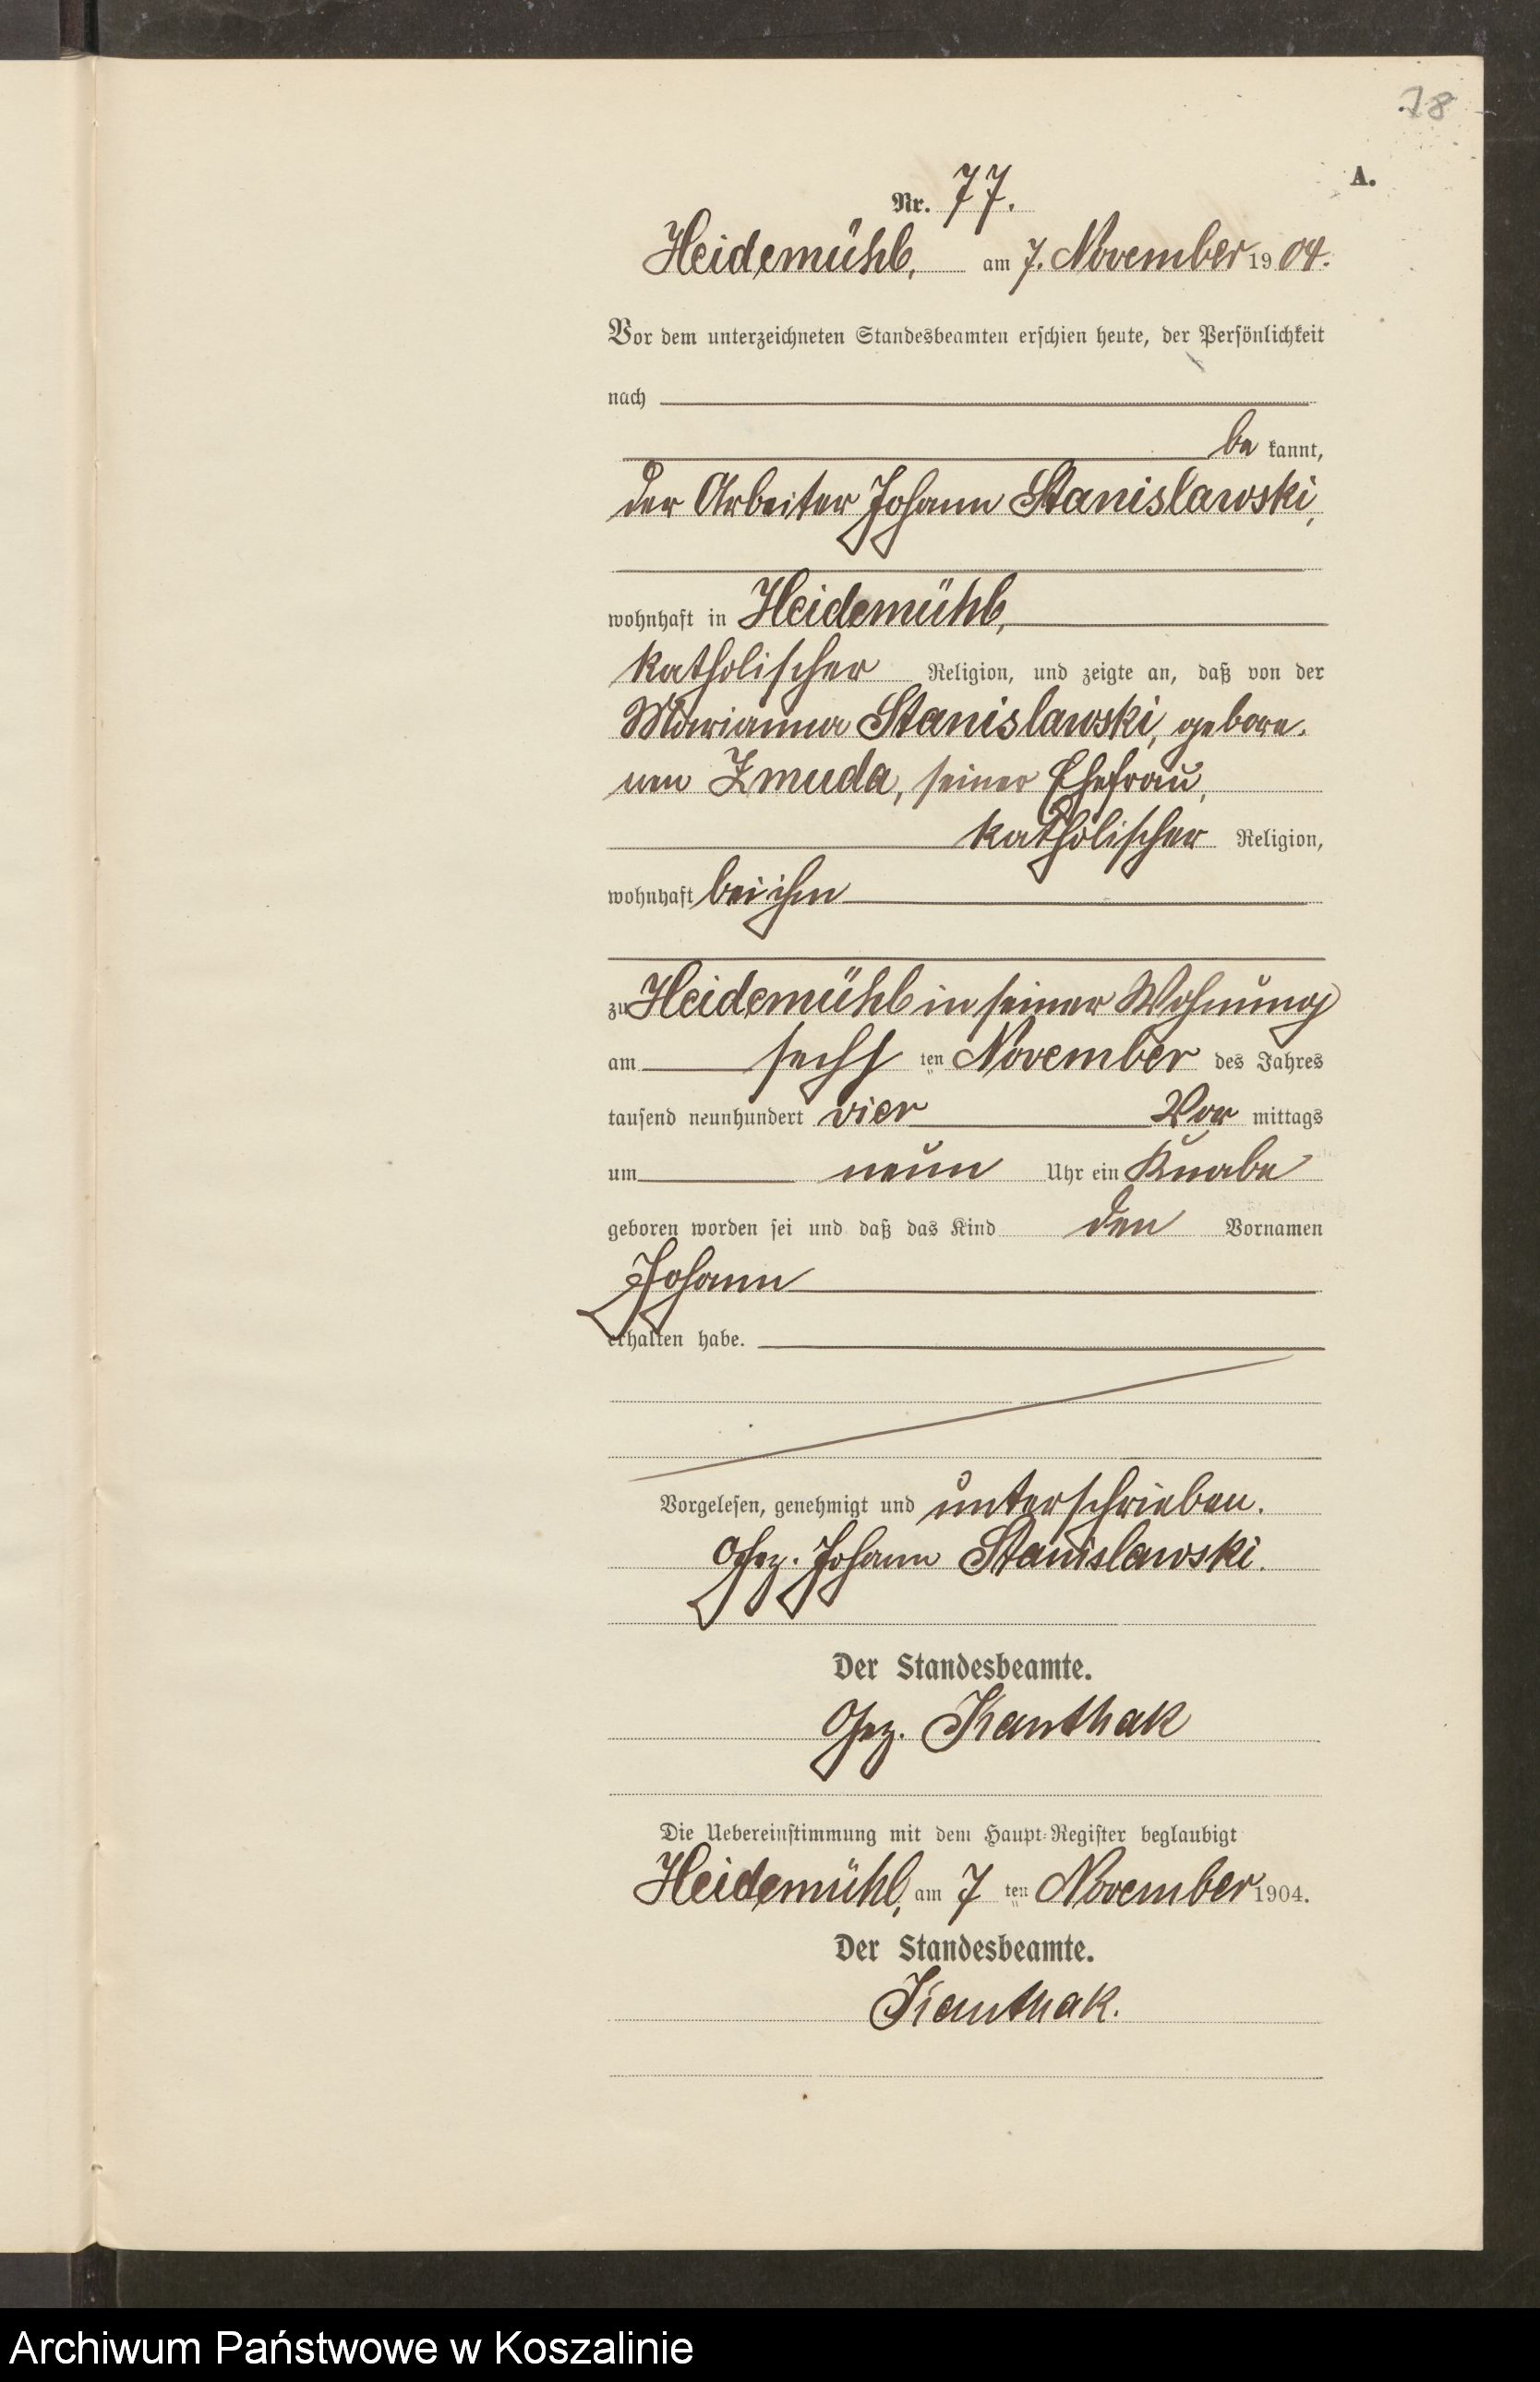 78
A.
Nr. 77.
Heidemühl, am 7. November 1904.
Vor dem unterzeichneten Standesbeamten erschien heute, der Persönlichkeit
nach
be kannt,
der Arbeiter Johann Stanislawski,
wohnhaft in Heidemühl,
katholischer Religion, und zeigte an, daß von der
Marianna Stanislawski, gebore-
nen Zmuda, seiner Ehefrau,
katholischer Religion,
wohnhaft bei ihm
zu Heidemühl in seiner Wohnung
am sechs ten November des Jahres
tausend neunhundert vier Vor mittags
um neun Uhr ein Knabe
geboren worden sei und daß das Kind den Vornamen
Johann
erhalten habe.
Vorgelesen, genehmigt und unterschrieben.
Gez. Johann Stanislawski.
Der Standesbeamte.
Gez. Kanthak
Die Uebereinstimmung mit dem Haupt-Register beglaubigt
Heidemühl, am 7 ten November 1904.
Der Standesbeamte.
Kanthak.
Archiwum Państwowe w Koszalinie